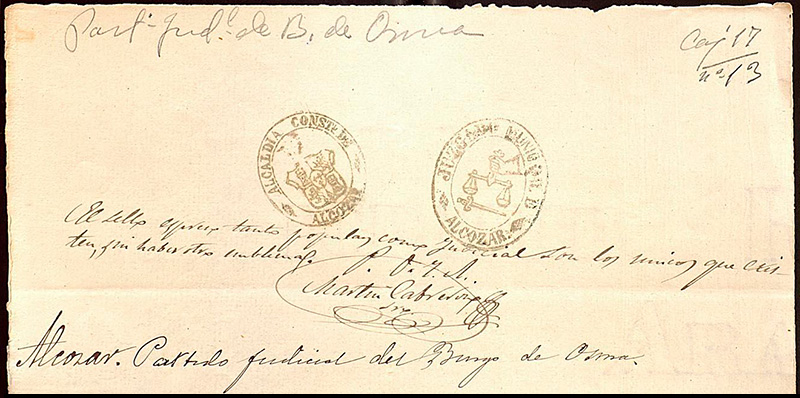 Part. Jud. de B. de Osma
Caj 17
nº 13
ALCALDIA CONSTL. DE
ALCOZAR.
JUZGADO MUNICIPAL D
ALCOZAR.
El sello tanto popular como judicial son los unicos que exis-
ten, sin haber otro emblema.
P. O.
Martin Cabrerizo
Alcozar. Partido Judicial del Burgo de Osma.